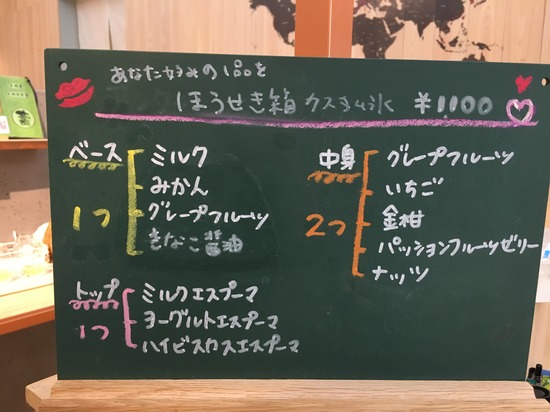 あなた好みの1品を
ほうせき箱カスタム氷 ¥1100
ベース
1つ
ミルク
みかん
グレープフルーツ
きなこ醤油
中身
2つ
グレープフルーツ
いちご
金柑
パッションフルーツゼリー
ナッツ
トップ
1つ
ミルクエスプーマ
ヨーグルトエスプーマ
ハイビスカスエスプーマ